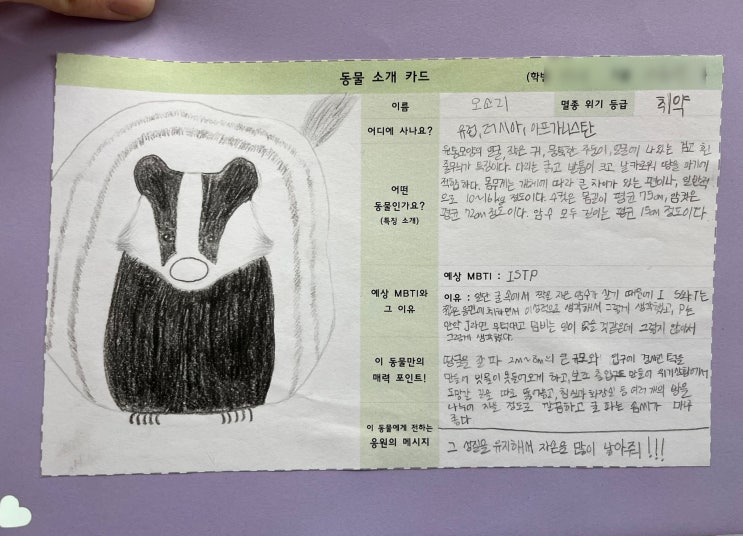 동물 소개 카드 (학번
이름 오소리 멸종 위기 등급 취약
어디에 사나요? 유럽, 러시아, 아프가니스탄
어떤
동물인가요?
(특징 소개)
원통모양의 얼굴, 작은 귀, 뭉툭한 주둥이, 얼굴에 나있는 검고 흰
줄무늬가 특징이다. 다리는 굵고 발톱이 크고 날카로워 땅을 파기에
적합하다. 몸무게는 개체에 따라 큰 차이가 있는 편이나, 일반적
으로 10~16kg 정도이다. 수컷은 몸길이 평균 75cm, 암컷은
평균 72cm 정도이다. 암수 모두 꼬리는 평균 15cm 정도이다
예상 MBTI와
그 이유
예상 MBTI : ISTP
이유 : 일단 굴 속에서 작은 무리가 살기 때문에 I S와 T는
이성적으로 생각해서 그렇게 생각했고, P는
만약 J라면 무턱대고 덤비는 일이 없을 것같은데 그렇지 않아서
그렇게 생각했다.
이 동물만의
매력 포인트!
땅굴을 잘 파 2m~8m의 큰 규모와 입구에 턱을
만들어 빗물이 못들어오게 하고, 출입구도 만들어 위기상황에서
도망갈 길을 따로 뚫어놓고, 침실과 화장실 등 여러 개의 방을
나누어 지낼 정도로 깔끔하고 굴 파는 솜씨가 매우
좋다
이 동물에게 전하는
응원의 메시지
그 성질을 유지해서 자손을 많이 낳아줘!!!